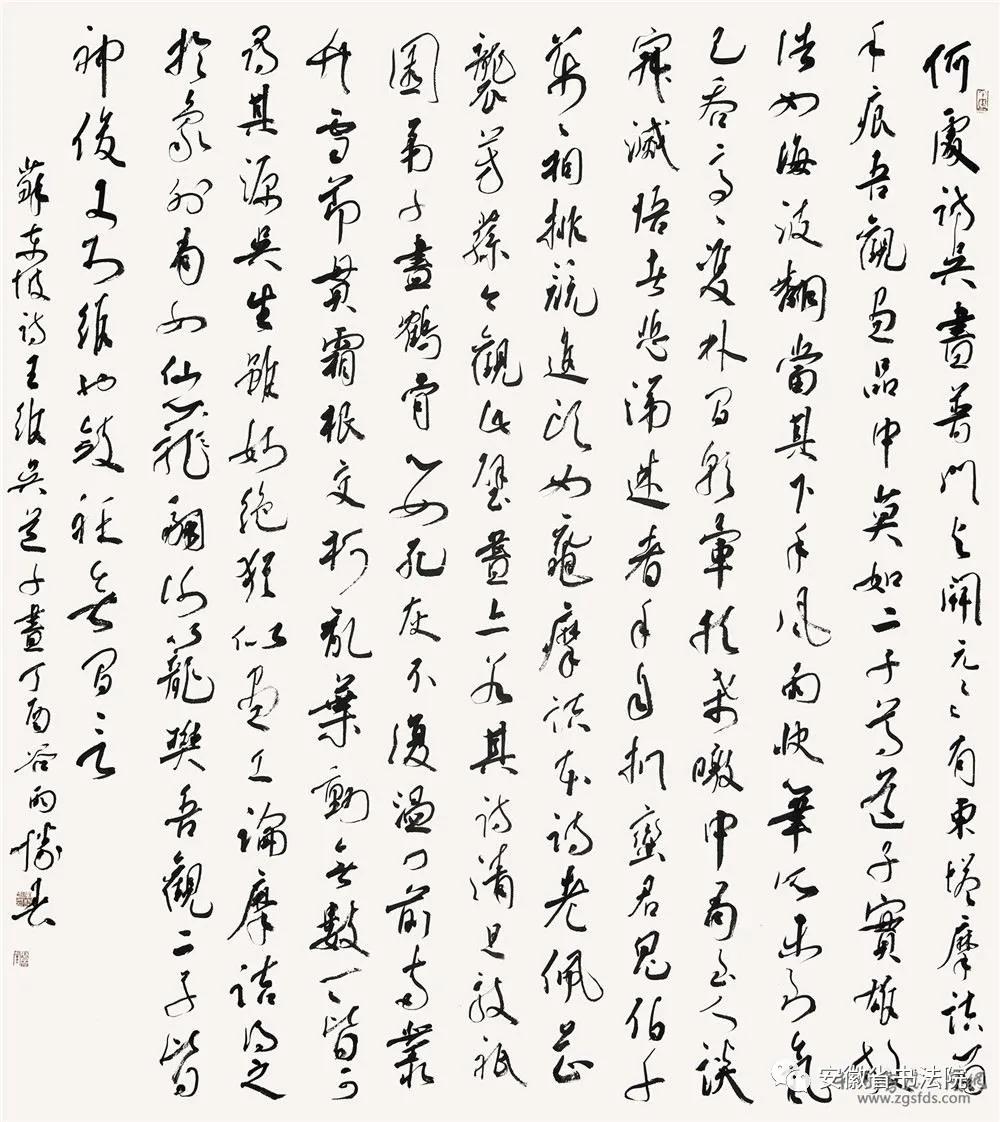 何處訪吳畫普門與開元〻有東塔摩詰留
手痕吾觀畫品中莫如二子尊道子實雄放
浩如海波翻當其下手風雨快筆所未到氣
已吞亭〻雙林間彩暈扶桑暾中有至人談
寂滅悟者悲涕迷者手自捫蠻君鬼伯千
萬〻相排競進頭如黿摩詰本詩老佩芷
襲芳蓀今觀此壁畫亦若其詩清且敦祇
園弟子盡鶴骨心如死灰不復溫門前兩叢
竹雪節貫霜根交柯亂葉動無數一〻皆可
尋其源吳生雖妙絕猶以畫工論摩詰得之
於象外有如仙籠翮謝籠樊吾觀二子皆
神俊又於維也斂衽無間言
蘇東坡詩王維吳道子畫丁酉谷雨
安徽省书法院
www.zgsfds.com